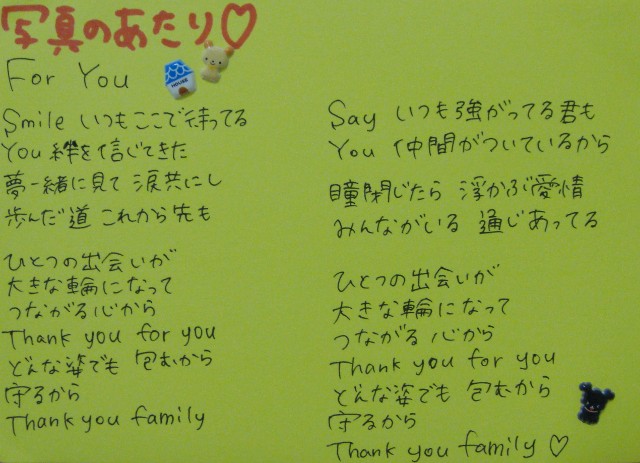 写真のあたり♡
For You
HOUSE
Smile いつもここで待ってる
You 絆を信じてきた
夢一緒に見て 涙共にし
歩んだ道 これから先も
ひとつの出会いが
大きな輪になって
つながる心から
Thank you for you
どんな姿でも 包むから
守るから
Thank you family
Say いつも強がってる君も
You 仲間がついているから
瞳閉じたら 浮かぶ愛情
みんながいる 通じあってる
ひとつの出会いが
大きな輪になって
つながる 心から
Thank you for you
どんな姿でも 包むから
守るから
Thank you family ♡